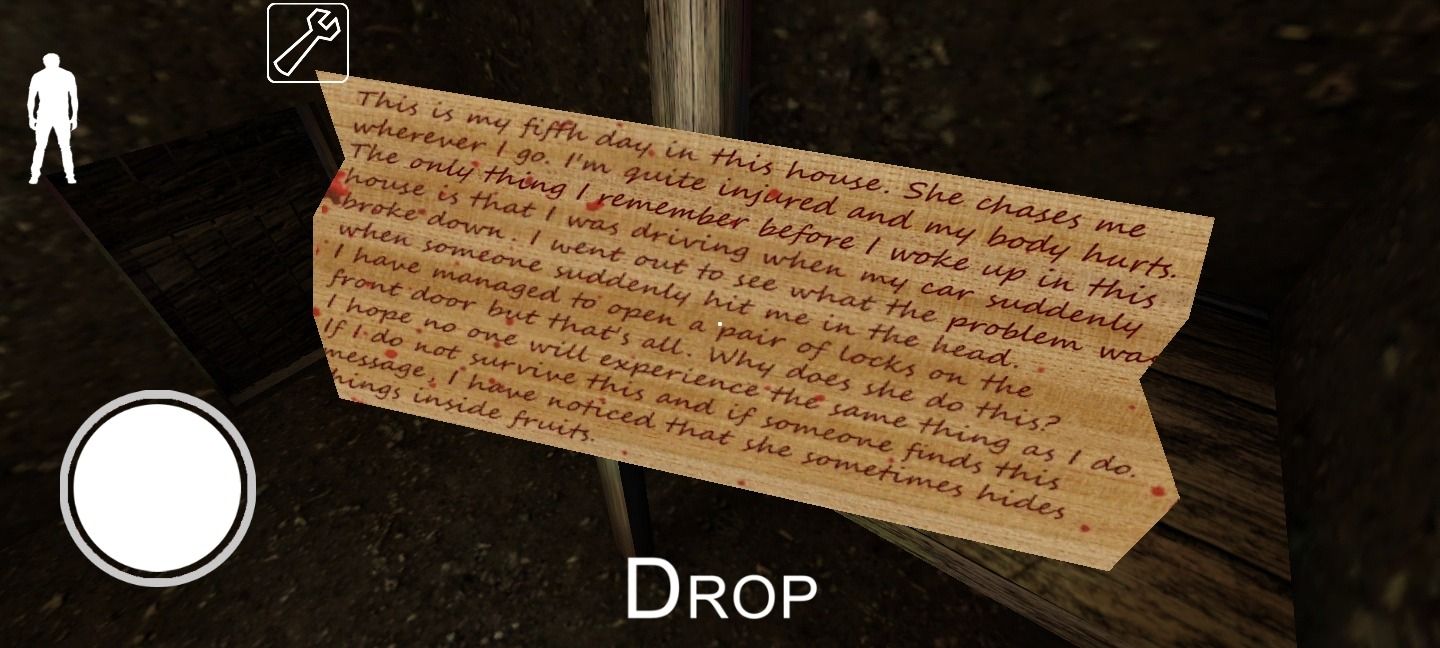 This is my fifth day in this house. She chases me
wherever I go. I'm quite injured and my body hurts.
The only thing I remember before I woke up in this
house is that I was driving when my car suddenly
broke down. I went out to see what the problem was
when someone suddenly hit me in the head.
I have managed to open a pair of locks on the
front door but that's all. Why does she do this?
I hope no one will experience the same thing as I do.
If I do not survive this and if someone finds this
message, I have noticed that she sometimes hides
hings inside fruits.
DROP